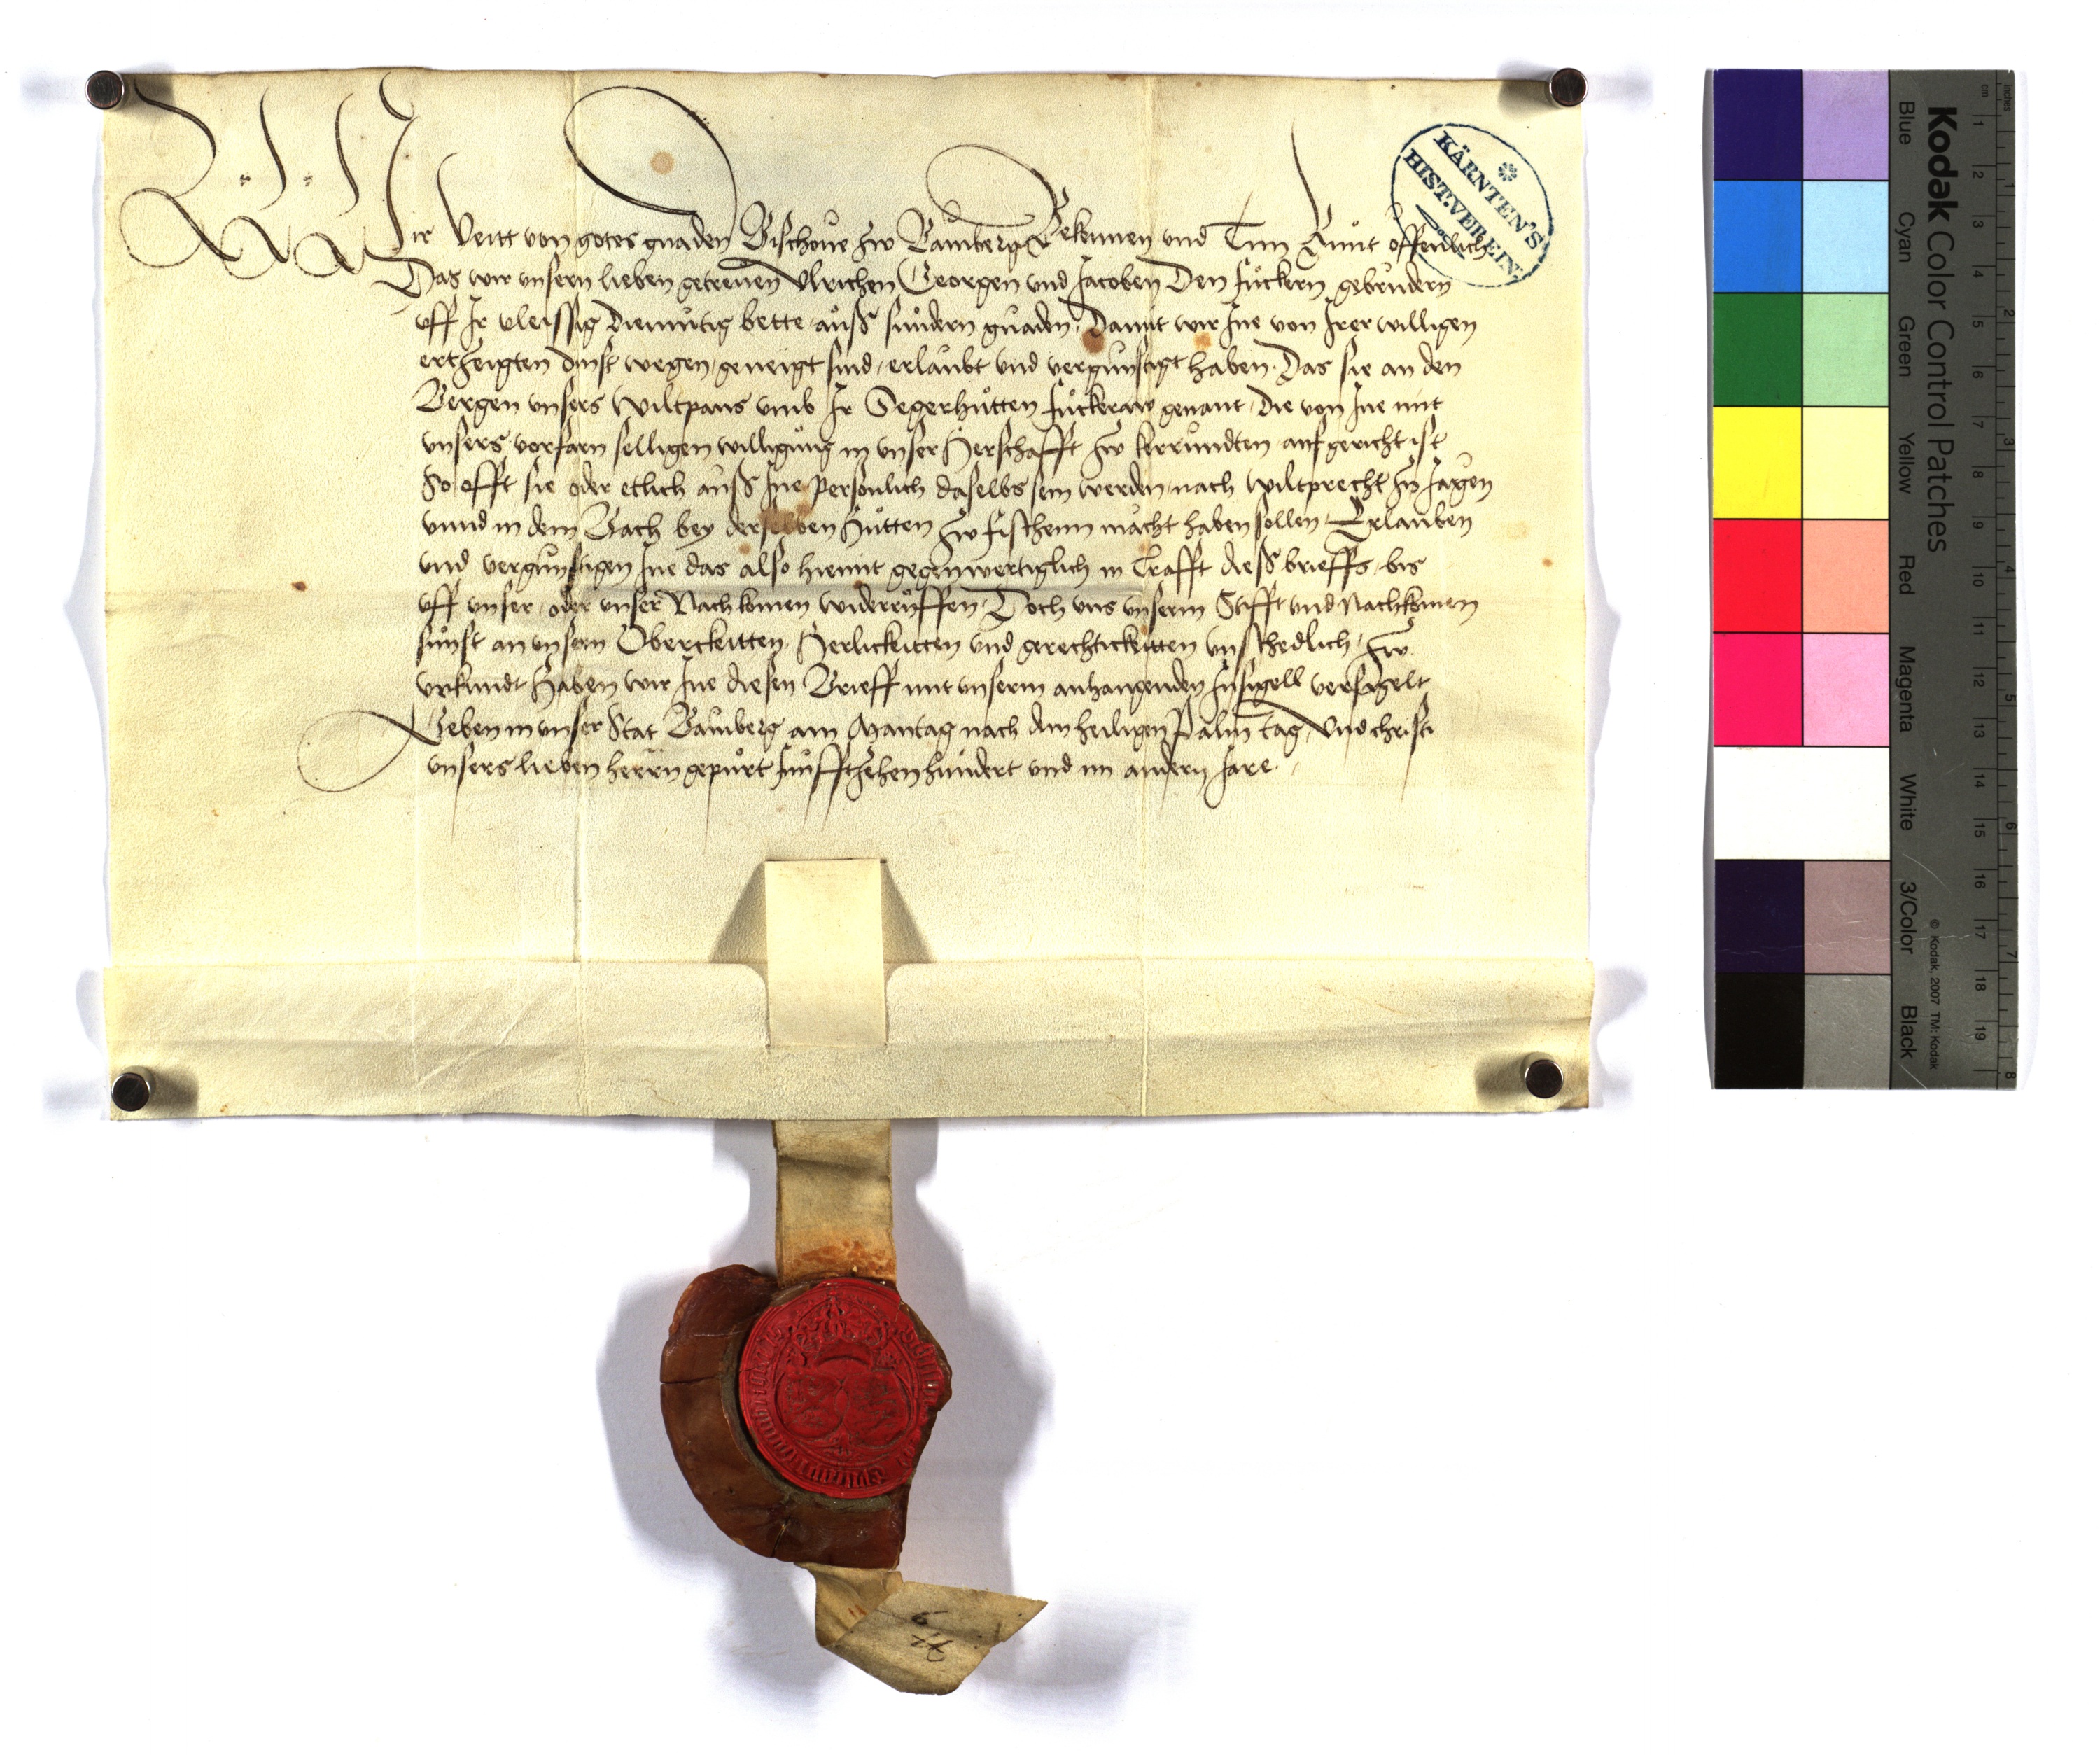 Wir Veitt von gotes gnaden Bischoue zw Bamberg Bekennen vnd Tun Kunt offenlich
Das wir vnsern lieben getreuen Vlrichen Georgen vnd Jacoben Den fuckern gebrudern
vff Ir vleissig diemutig bette auß sundern gnaden, Damit wir Ine von Irer willigen
ertzeigten dinst wegen, geneigt sind, erlaubt vnd vergunstigt haben. Das sie an den
Bergen vnsers Wiltpans vmb Ir Segerhutten fuckeraw genant, die von Ine mit
vnsers vorfarn selligen willigung in vnser Herschafft zw kerrndten aufgericht ist
So offt sie oder etlich auß Ine personlich daselbs sein werden, nach Wiltprecht zu Jagen
vnnd in dem Bach bey derselben Hutten zw fischenn macht haben sollen, Erlauben
vnd vergunstigen Ine das also hiemit gegenwertiglich in Crafft dieß brieffs, bis
vff vnser, oder vnser Nachkomen widerruffen, Doch vns vnserm Stifft vnd Nachkomen
sunst an vnsern Oberckeitten, Herlickeitten vnd gerechtickeitten vnschedlich, zw
vrkundt Haben wir Ine diesen Brieff mit vnserm anhangenden Insigell versigelt
Geben in vnser Stat Bamberg am Mantag nach dem heiligen Palm tag, Vnd christi
vnsers lieben herrn gepurt funfftzehenhundert vnd im andern Jare.
KÄRNTEN'S
HIST. VEREIN.
Kodak Color Control Patches
Blue Cyan Green Yellow Red Magenta White 3/Color Black
© Kodak, 2007 TM: Kodak
cm 1 2 3 4 5 6 7 8 9 10 11 12 13 14 15 16 17 18 19
inches 1 2 3 4 5 6 7 8